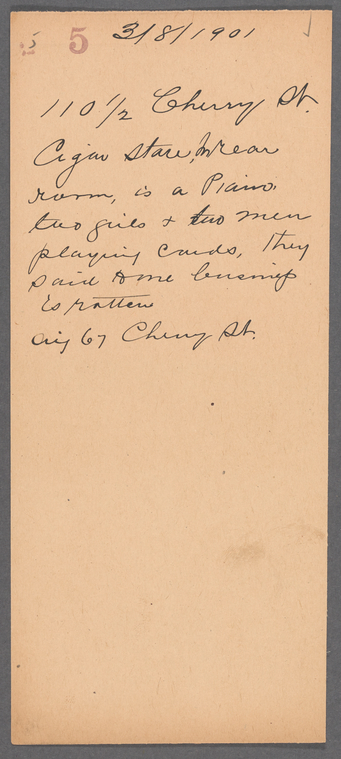 5 5 3/8/1901
110 1/2 Cherry St.
Cigar Store, In rear
room, is a Piano.
two girls + two men
playing cards, They
said to me business
is rotten
67 Cherry St.